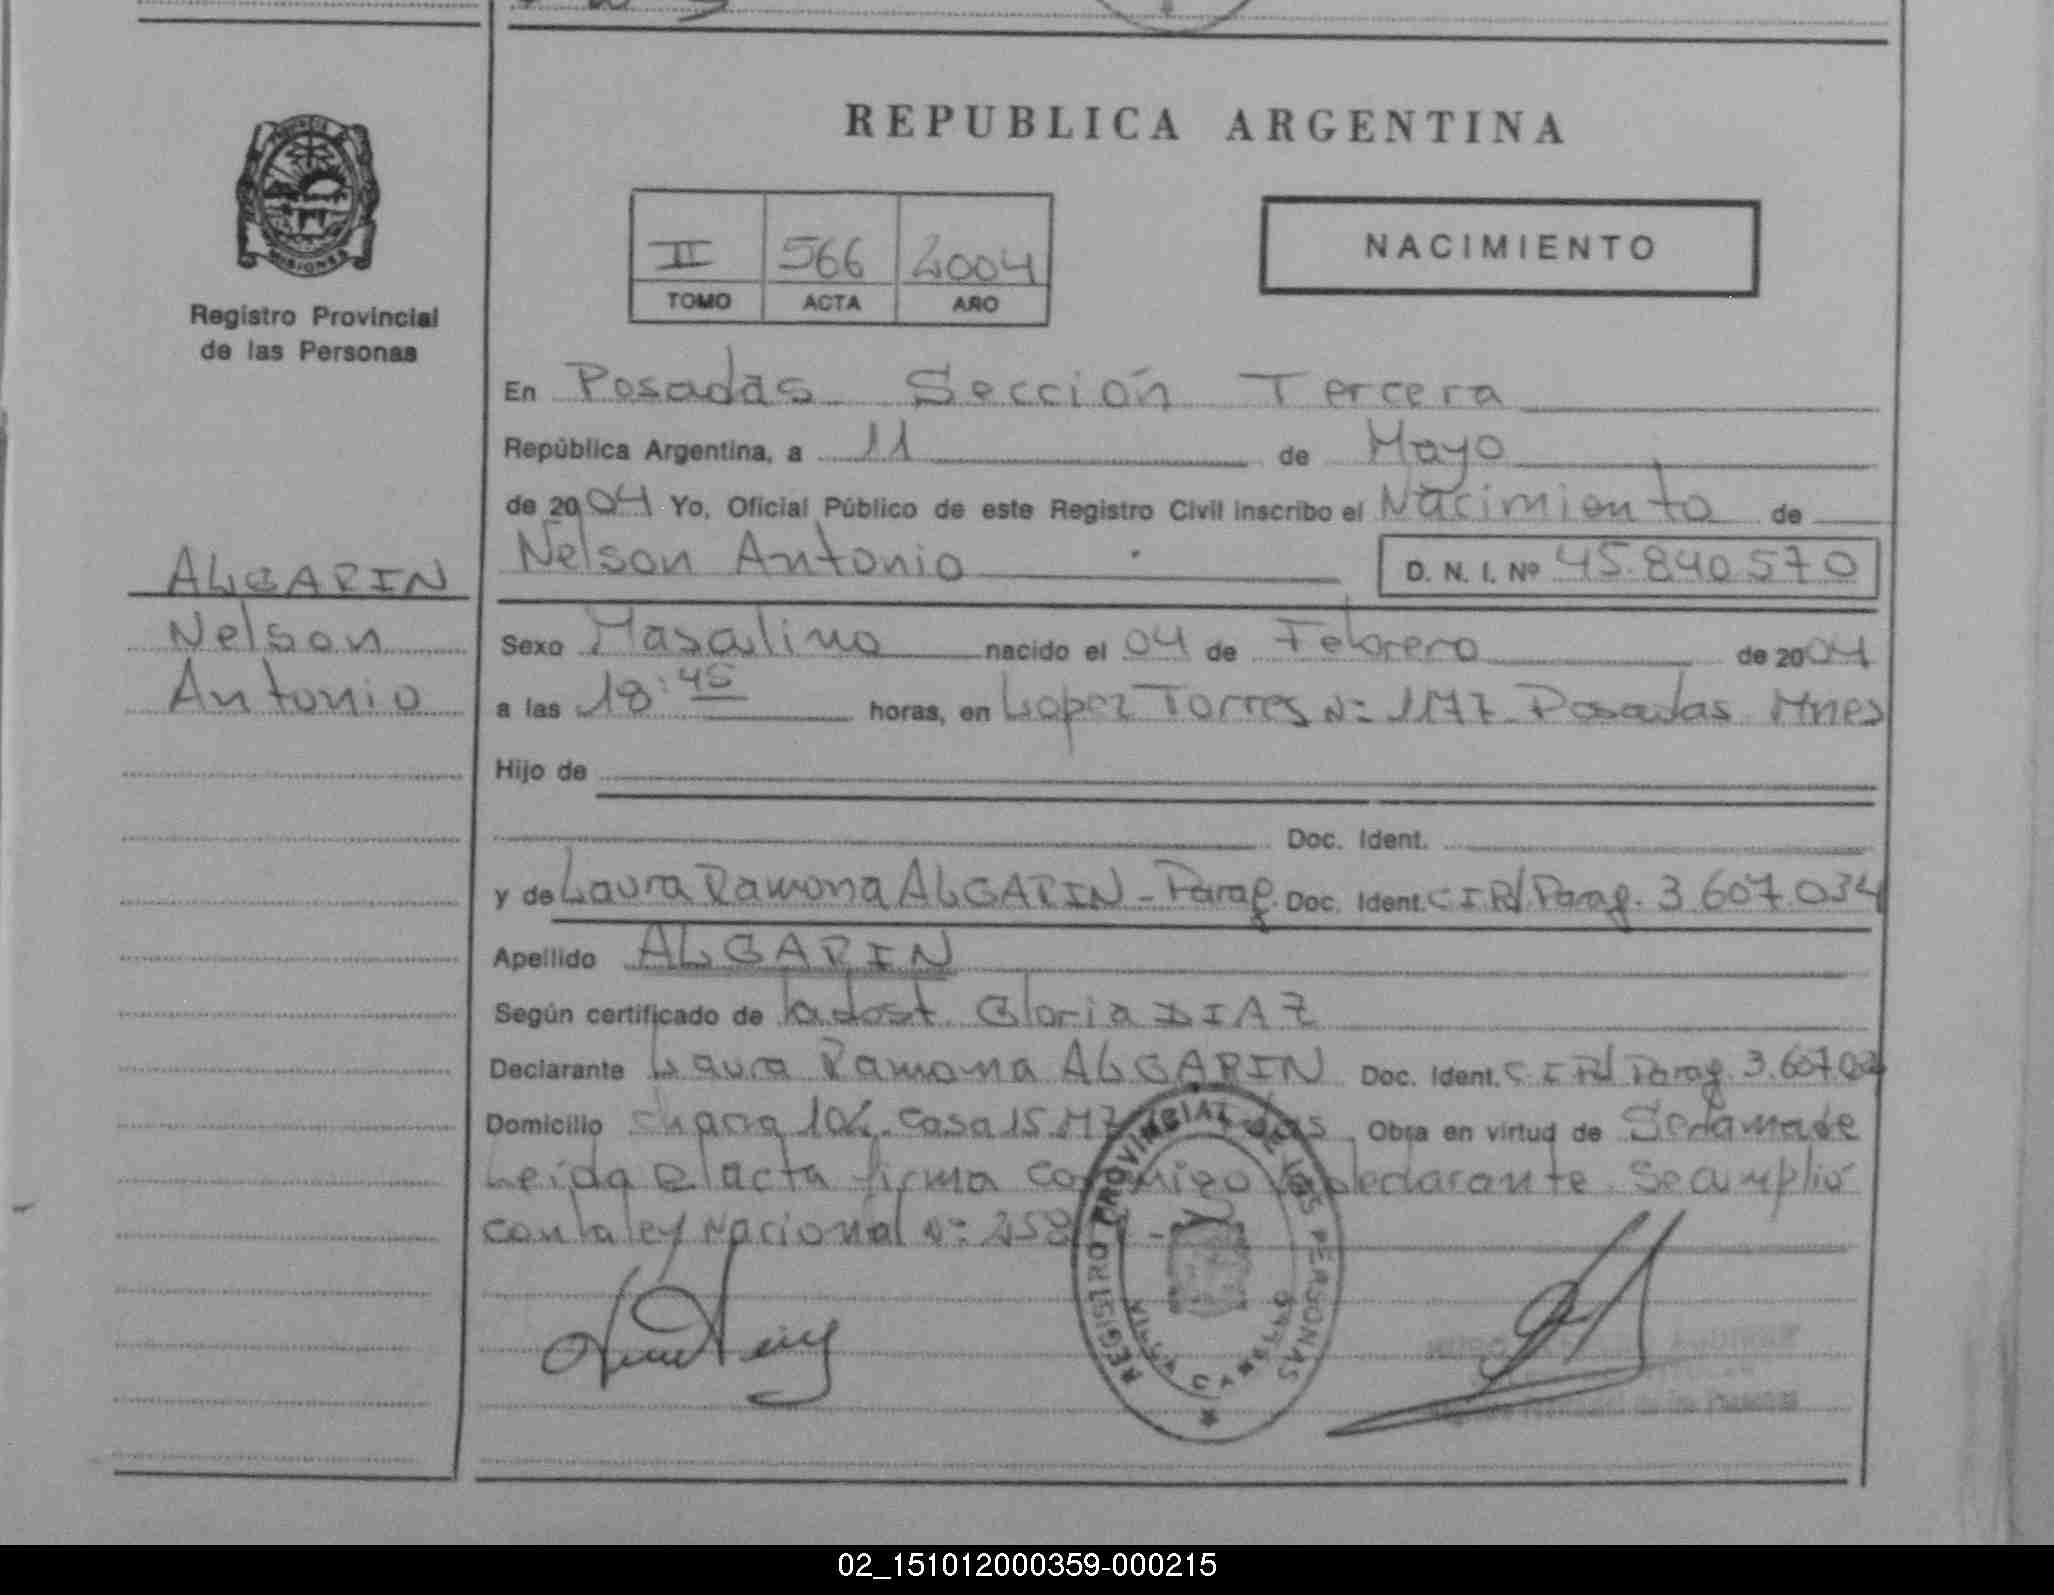 REPUBLICA ARGENTINA
MISIONES
Registro Provincial
de las Personas
II 566 2004
TOMO ACTA AÑO
NACIMIENTO
En Posadas Sección Tercera
República Argentina, a 11 de Mayo
de 2004 Yo, Oficial Público de este Registro Civil inscribo el Nacimiento de
Nelson Antonio D. N. I. Nº 45.840.570
ALGARIN
Nelson
Antonio
Sexo Masculino nacido el 04 de Febrero de 2004
a las 18:45 horas, en Lopez Torres Nº 1177 Posadas Mnes
Hijo de
Doc. Ident.
y de Laura Ramona ALGARIN - Parag. Doc. Ident. C.I.P/ Parag. 3.607.034
Apellido ALGARIN
Según certificado de la obst. Gloria DIAZ
Declarante Laura Ramona ALGARIN Doc. Ident. C.I. P/ Parag. 3.607.03
Domicilio chacra 104 casa 15 Mz Obra en virtud de Ser la madre
Leida el acta firma conmigo la declarante. Se cumplió
con la ley Nacional Nº
REGISTRO PROVINCIAL DE LAS PERSONAS
VILLA CABELLO
02_151012000359-000215